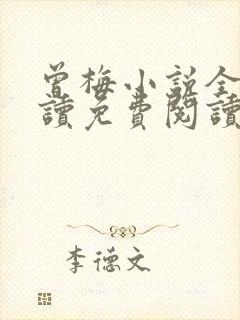 曾梅小説全
讀免費閱讀
李德文